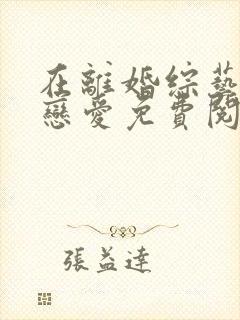 在離婚綜藝
戀愛免費閱
張益達